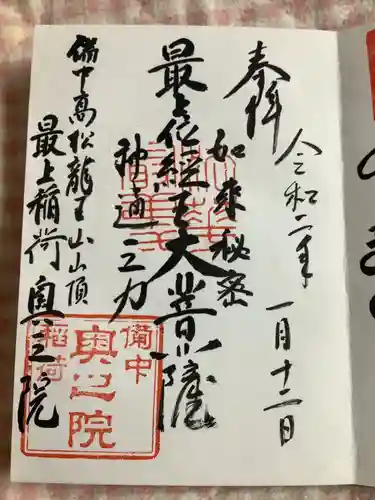 奉拝
令和二年
一月十二日
如来秘密
最上位経王大菩薩
神通之力
備中高松龍王山山頂
最上稲荷 奥之院
備中
奥之院
稲荷